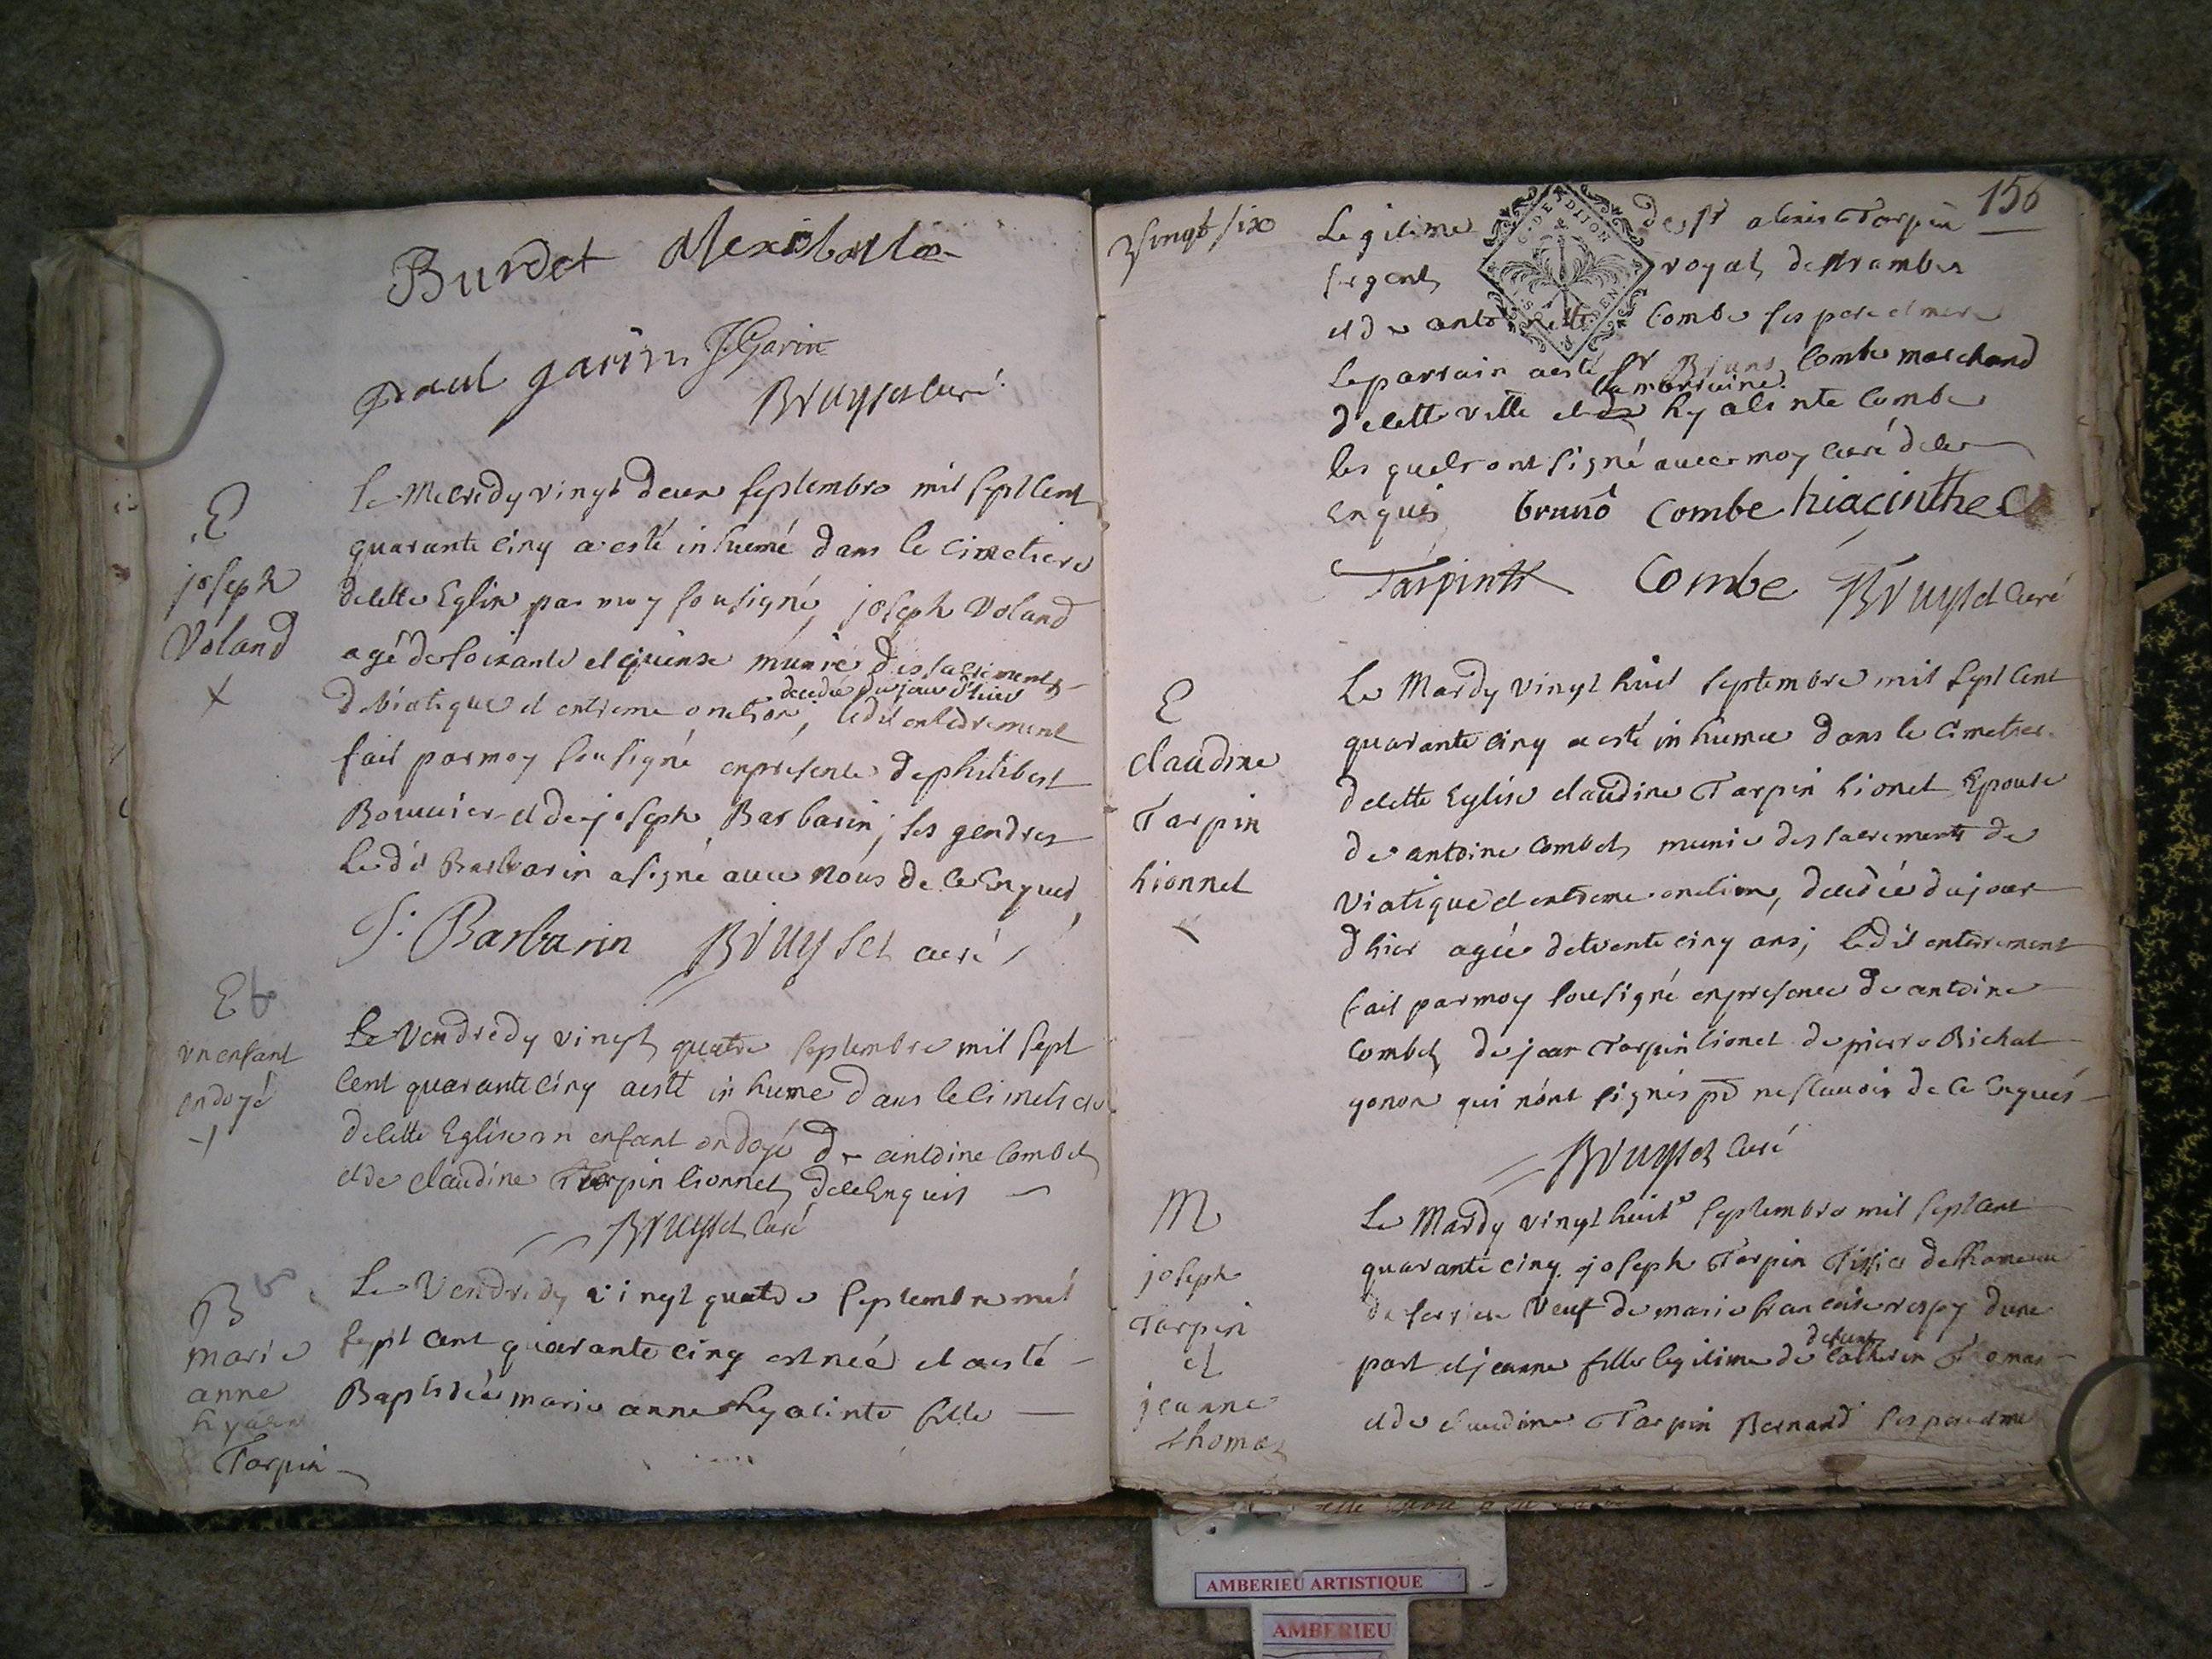 Burdet Alexis
paul garin J Garin
Bruyset curé
E
joseph
Voland
Le Mecredy vingt deux septembre mil sept cent
quarante cinq a esté inhumé dans le cimetiere
de cette Eglise par moy sousigné, joseph Voland
agé de soixante et quinse munie des sacrements
de viatique et extreme onction, decedée du jour d'hier ledit enterrement
fait par moy sousigné en presence de philibert
Bouuier et de joseph Barbarin, ses gendres
ledit Barbarin a signé avec nous de ce Enquis
J. Barbarin Bruyset curé
E
un enfant
ondoyé
Le Vendredy vingt quatre septembre mil sept
cent quarante cinq a esté inhumé dans le cimetiere
de cette Eglise un enfant ondoyé de antoine Combet
et de claudine Tarpin lionnet de ce Enquis
Bruyset curé
B
marie
anne
hyacin
Tarpin
Le Vendredy vingt quatre septembre mil
sept cent quarante cinq est née et a esté
Baptisée marie anne hyacinte fille
vingt six
156
Legitime de sr alexis Tarpin
sergent royal de st rambert
et de antoinette Combe ses pere et mere
le parrain a esté sr Bruno Combe marchand
de cette ville et la marraine hyacinte Combe
les quels ont signé avec moy curé de ce
enquis bruno combe hiacinthe C
Tarpin Combe Bruyset curé
G. DE DIJON
E
claudine
Tarpin
lionnet
Le Mardy vingt huit septembre mil sept cent
quarante cinq a esté inhumée dans le cimetiere
de cette Eglise claudine Tarpin lionet Epouse
de antoine Combet munie des sacrements de
viatique et extreme onction, decedée du jour
d hier agée de trente cinq ans; ledit enterrement
fait par moy sousigné en presence de antoine
Combet de jean Tarpin lionet de pierre Bichat
gonon qui n'ont signés pr ne scauoir de ce Enquis
Bruyset curé
M
joseph
Tarpin
et
jeanne
thomas
Le Mardy vingt huit septembre mil sept cent
quarante cinq joseph Tarpin Tissier
veuf de marie francoise d'une
part et jeanne fille legitime de defunt Thomas
et de claudine Tarpin Bernard ses pere et mere
AMBERIEU ARTISTIQUE
AMBERIEU